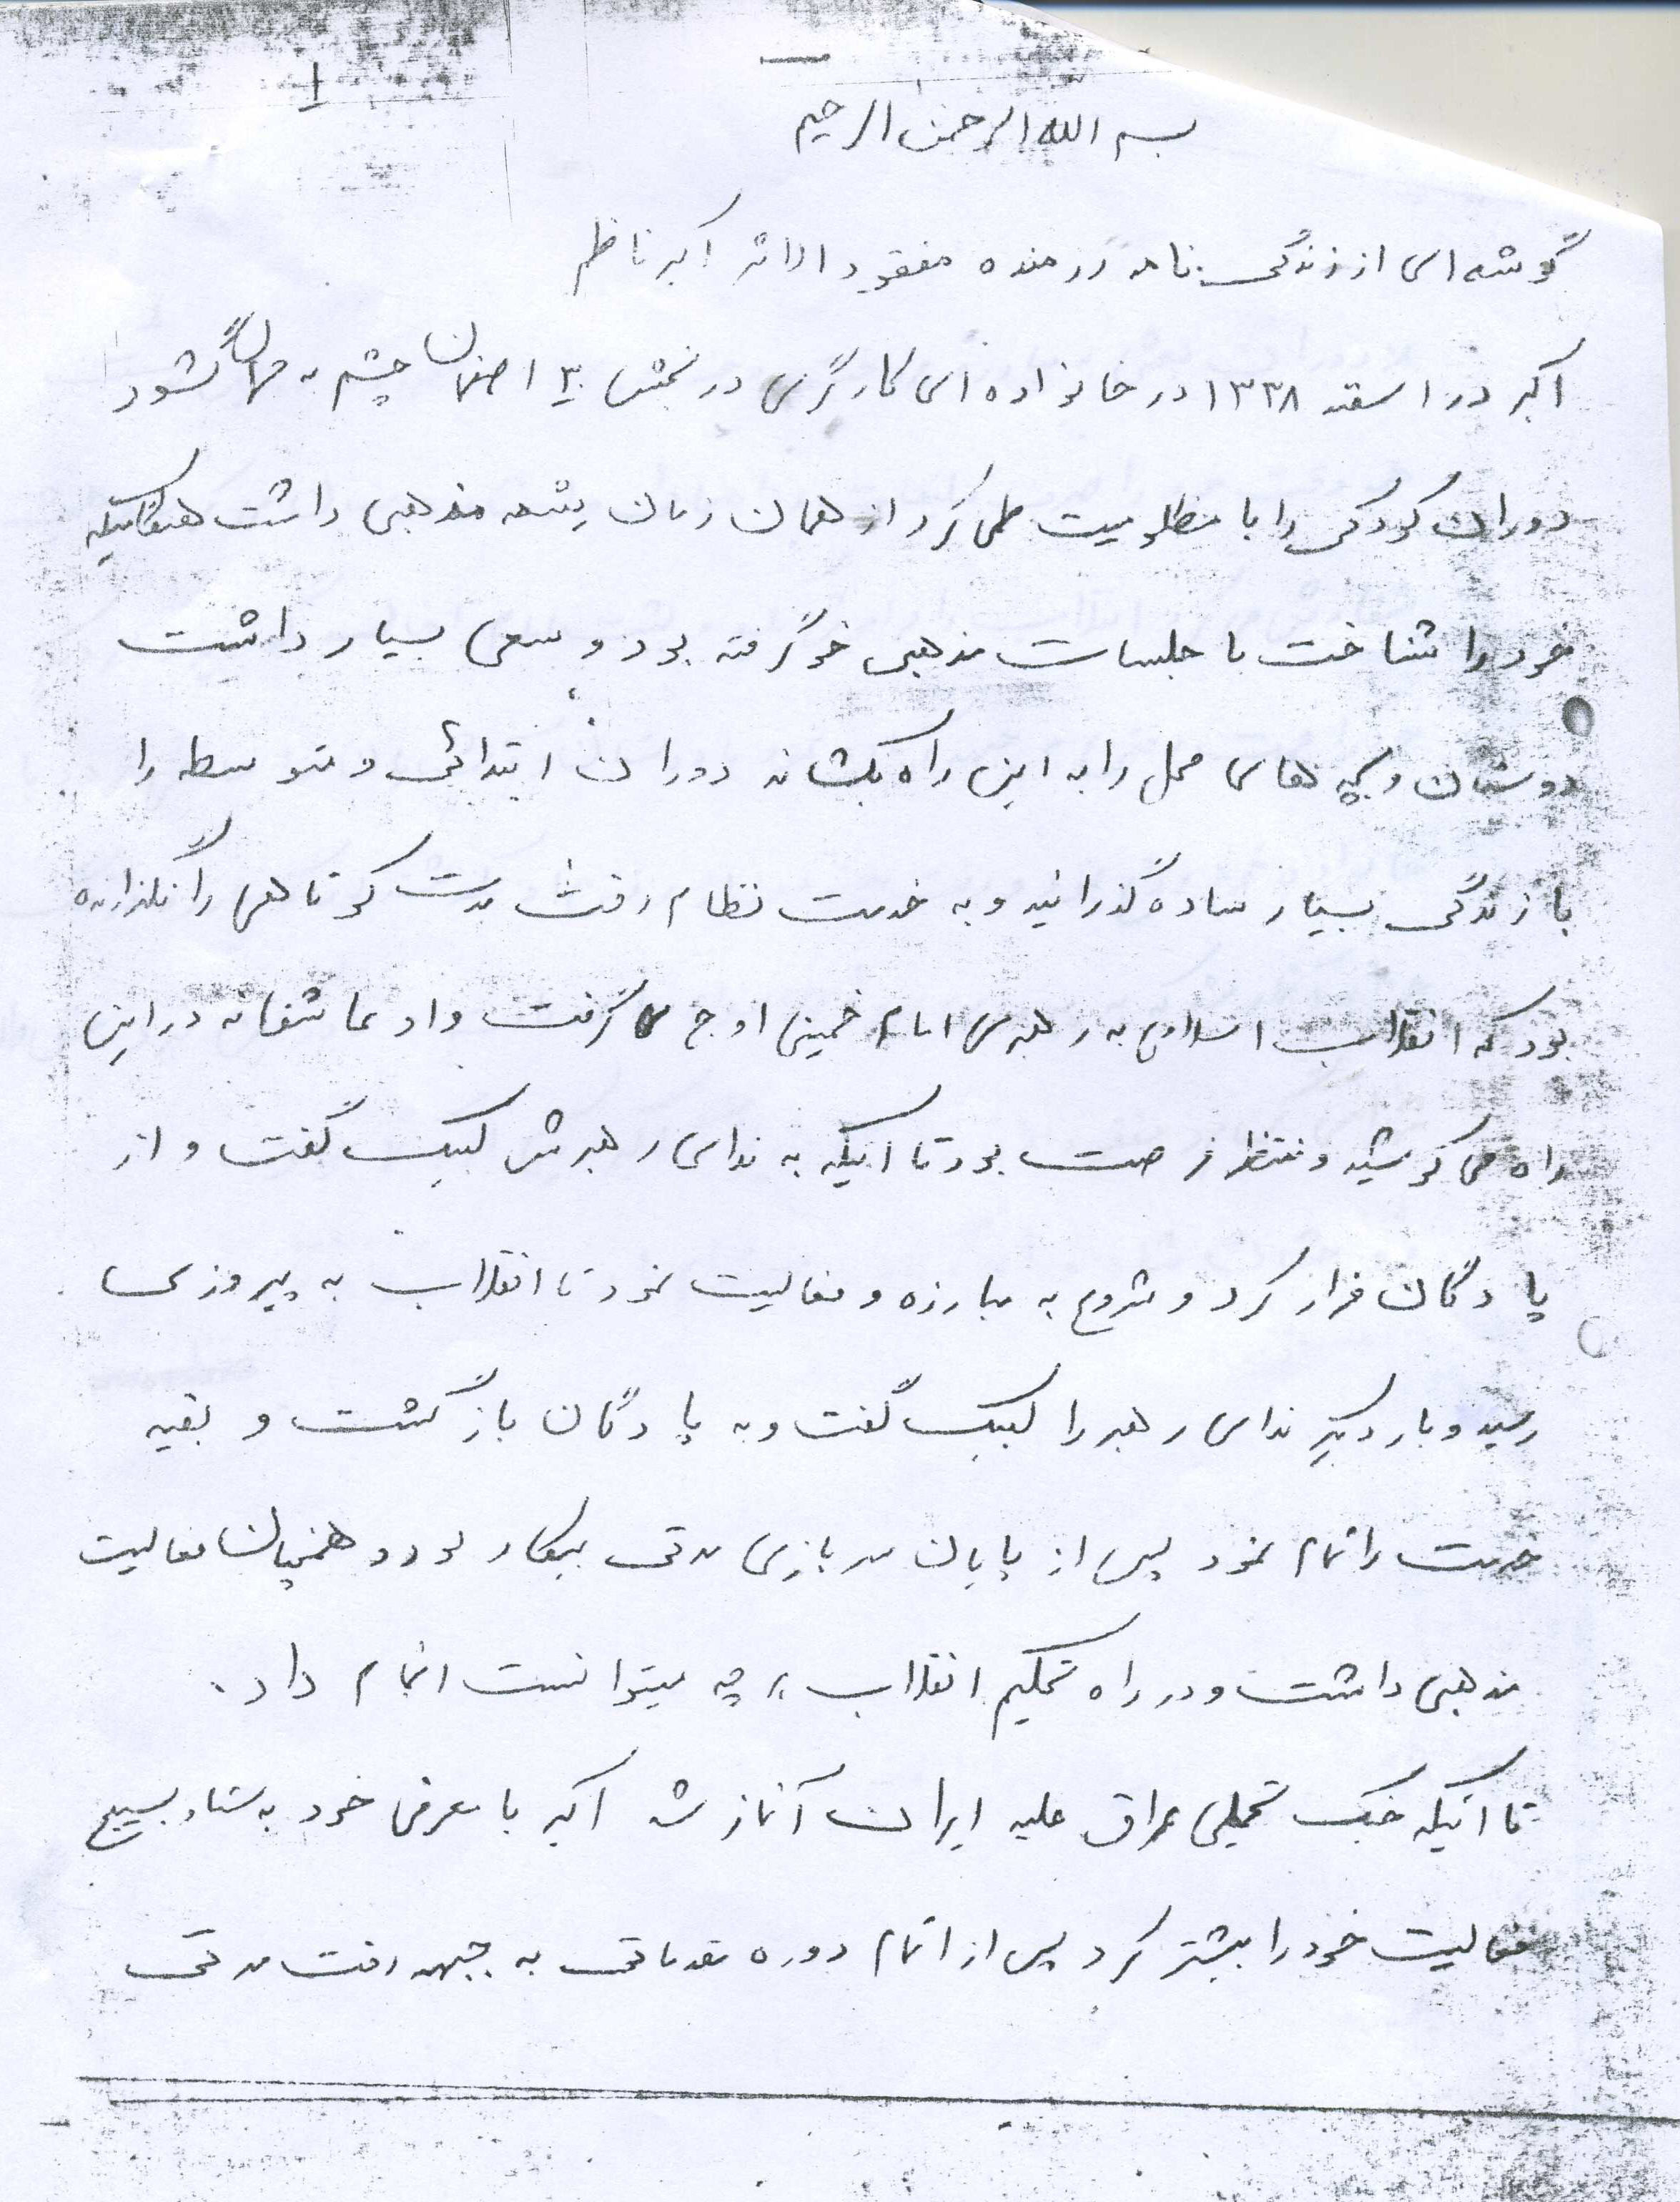 بسم الله الرحمن الرحیم
گوشه ای از زندگی نامه رزمنده مفقود الاثر اکبر ناظم
اکبر در اسفند ۱۳۳۸ در خانواده ای کارگری در بخش ۳ اصفهان چشم به جهان گشود
دوران کودکی را با مظلومیت طی کرد از همان زمان ریشه مذهبی داشت هنگامیکه
خود را شناخت با جلسات مذهبی خو گرفته بود و سعی بسیار داشت
دوستان و بچه های محل را به این راه بکشاند دوران ابتدائی و متوسطه را
با زندگی بسیار ساده گذرانید و به خدمت نظام رفت مدت کوتاهی را نگذرانده
بود که انقلاب اسلامی به رهبری امام خمینی اوج گرفت و او عاشقانه در این
راه می کوشید و منتظر فرصت بود تا اینکه به ندای رهبرش لبیک گفت و از
پادگان فرار کرد و شروع به مبارزه و فعالیت نمود تا انقلاب به پیروزی
رسید و بار دیگر ندای رهبر را لبیک گفت و به پادگان بازگشت و بقیه
خدمت را تمام نمود پس از پایان سربازی مدتی بیکار بود و همچنان فعالیت
مذهبی داشت و در راه تحکیم انقلاب هر چه میتوانست انجام داد.
تا اینکه جنگ تحمیلی عراق علیه ایران آغاز شد اکبر با معرفی خود به ستاد بسیج
فعالیت خود را بیشتر کرد پس از اتمام دوره مقدماتی به جبهه رفت مدتی